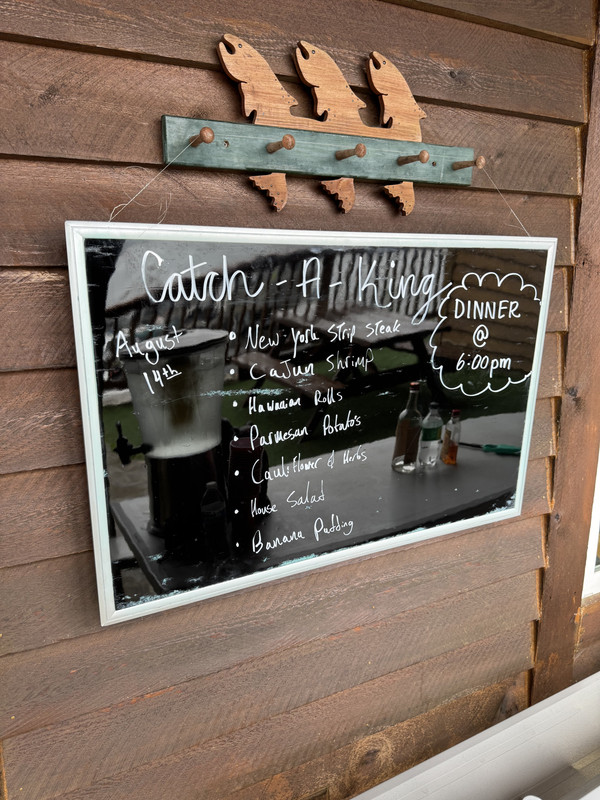 Catch-A-King
DINNER
@
6:00pm
August
14th
• New-York Strip Steak
• Cajun Shrimp
• Hawaiian Rolls
• Parmesan Potato's
• Cauliflower & Herbs
• House Salad
• Banana Pudding